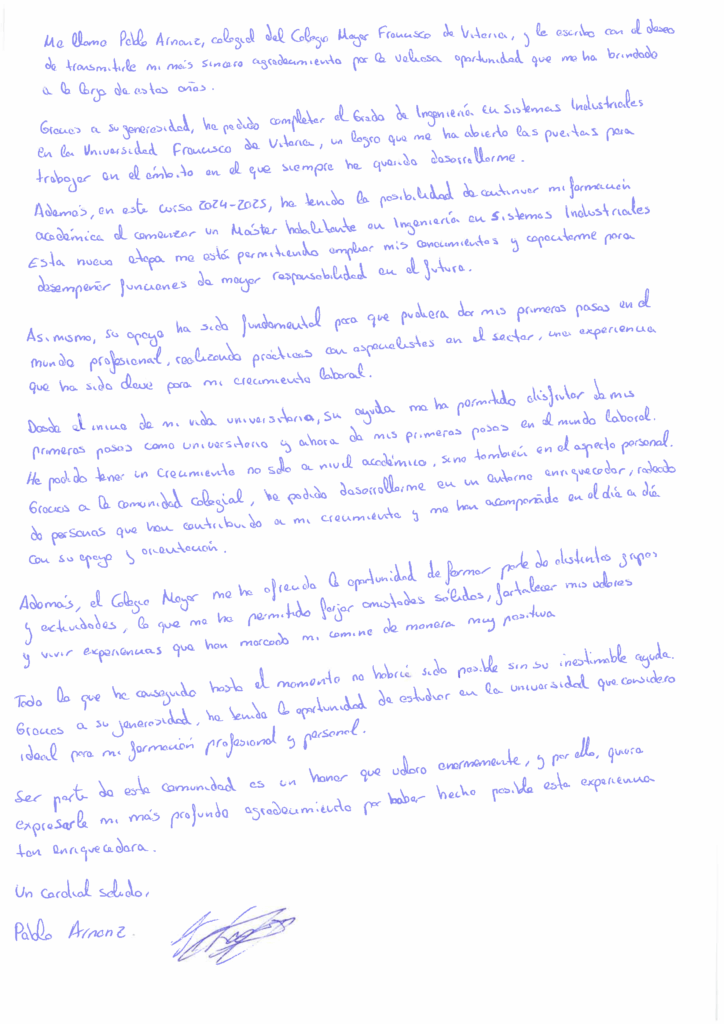 Me llamo Pablo Arnanz, colegial del Colegio Mayor Francisco de Vitoria, y le escribo con el deseo
de transmitirle mi más sincero agradecimiento por la valiosa oportunidad que me ha brindado
a lo largo de estos años.
Gracias a su generosidad, he podido completar el Grado de Ingeniería en Sistemas Industriales
en la Universidad Francisco de Vitoria, un logro que me ha abierto las puertas para
trabajar en el ámbito en el que siempre he querido desarrollarme.
Además, en este curso 2024-2025, he tenido la posibilidad de continuar mi formación
académica al comenzar un Máster habilitante en Ingeniería en Sistemas Industriales
Esta nueva etapa me está permitiendo ampliar mis conocimientos y capacitarme para
desempeñar funciones de mayor responsabilidad en el futuro.
Asimismo, su apoyo ha sido fundamental para que pudiera dar mis primeros pasos en el
mundo profesional, realizando prácticas con especialistas en el sector, una experiencia
que ha sido clave para mi crecimiento laboral.
Desde el inicio de mi vida universitaria, su ayuda me ha permitido disfrutar de mis
primeros pasos como universitario y ahora de mis primeros pasos en el mundo laboral.
He podido tener un crecimiento no solo a nivel académico, sino también en el aspecto personal.
Gracias a la comunidad colegial, he podido desarrollarme en un entorno enriquecedor, rodeado
de personas que han contribuido a mi crecimiento y me han acompañado en el día a día
con su apoyo y orientación.
Además, el Colegio Mayor me ha ofrecido la oportunidad de formar parte de distintos grupos
y actividades, lo que me ha permitido forjar amistades sólidas, fortalecer mis valores
y vivir experiencias que han marcado mi camino de manera muy positiva
Todo lo que he conseguido hasta el momento no habría sido posible sin su inestimable ayuda.
Gracias a su generosidad, he tenido la oportunidad de estudiar en la universidad que considero
ideal para mi formación profesional y personal.
Ser parte de esta comunidad es un honor que valoro enormemente, y por ello, quiero
expresarle mi más profundo agradecimiento por haber hecho posible esta experiencia
tan enriquecedora.
Un cordial saludo,
Pablo Arnanz.